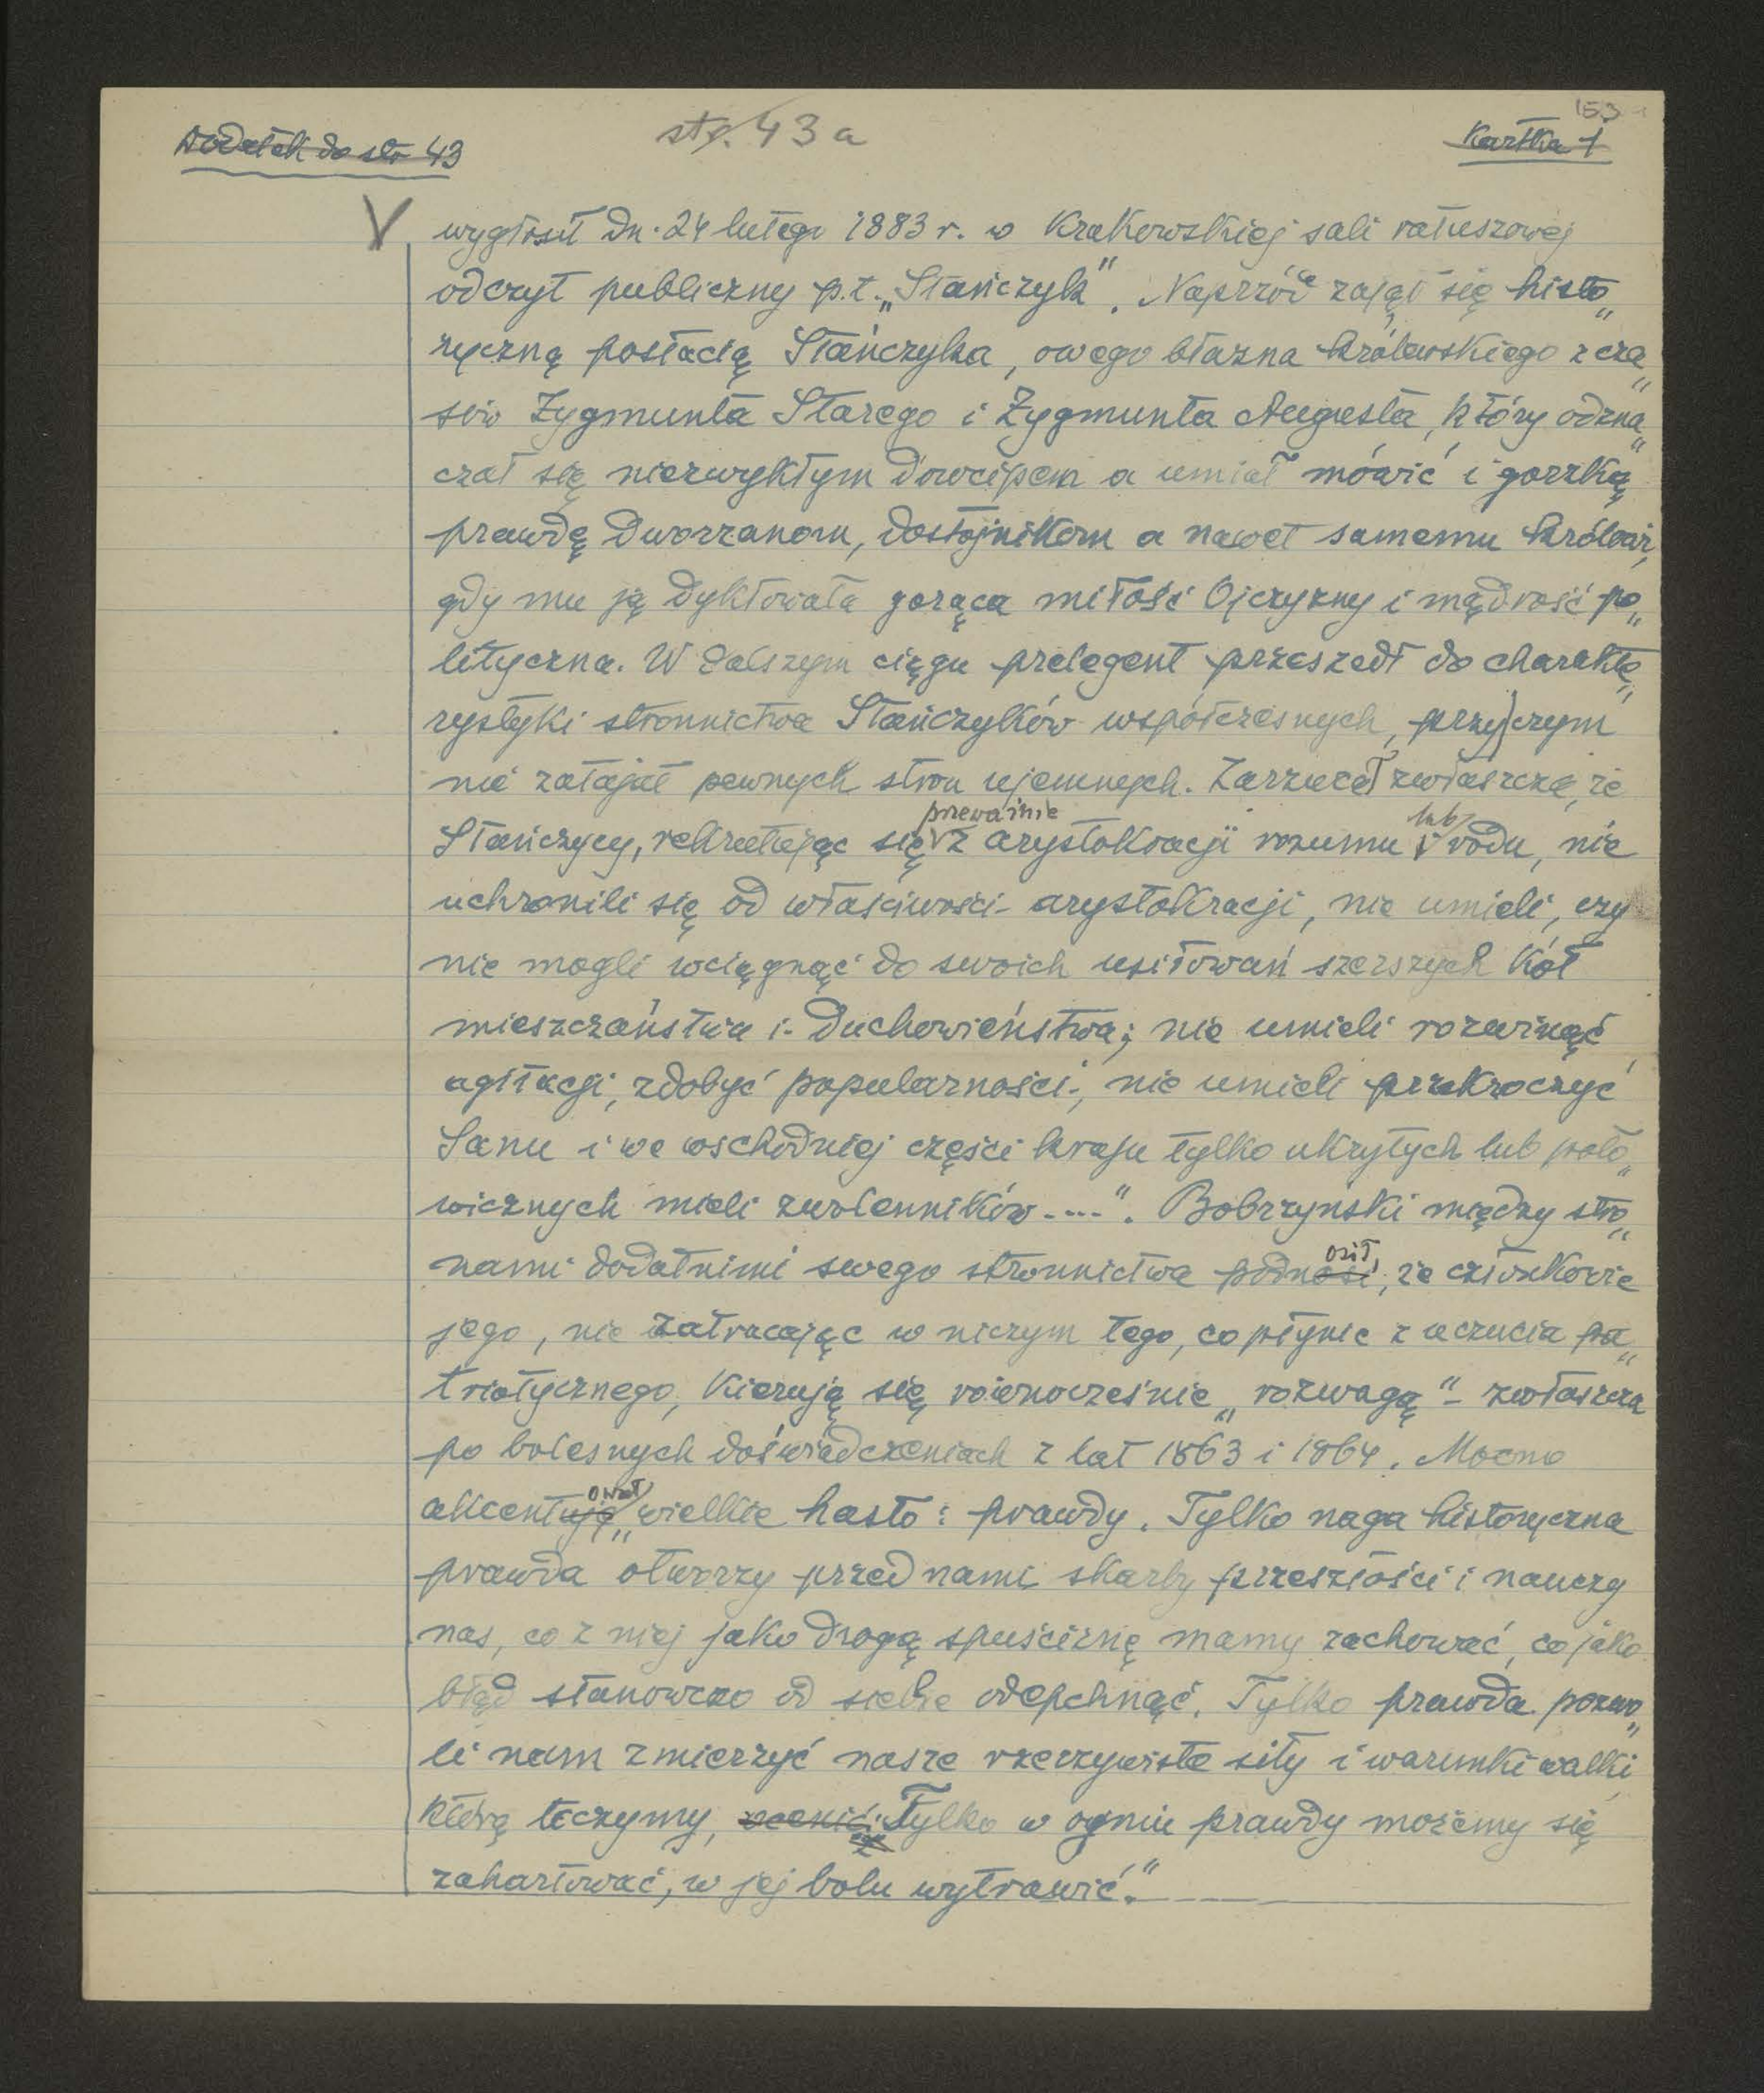 153
Dodatek do str 43
str. 43 a
Kartka 1
V
wygłosił dn. 24 lutego 1883 r. w Krakowskiej sali ratuszowej
odczyt publiczny p.t. „Stańczyk”. Naprzód zajął się histo„
ryczną postacią Stańczyka, owego błazna królewskiego z cza„
sów Zygmunta Starego i Zygmunta Augusta, który odzna„
czał się niezwykłym dowcipem a umiał mówić i gorzką
prawdę dworzanom, dostojnikom a nawet samemu królowi,
gdy mu ją dyktowała gorąca miłość Ojczyzny i mądrość po„
lityczna. W dalszym ciągu prelegent przeszedł do charakte„
rystyki stronnictwa Stańczyków współczesnych, przy)czym
nie zatajał pewnych stron ujemnych. Zarzucał zwłaszcza, że
przeważnie lub
Stańczycy, rekrutując się z arystokracji rozumu i rodu, nie
uchronili się od właściwości arystokracji, nie umieli, czy
nie mogli wciągnąć do swoich usiłowań szerszych kół
mieszczaństwa i duchowieństwa; nie umieli rozwinąć
agitacji, zdobyć popularności, nie umieli przekroczyć
Sanu i we wschodniej części kraju tylko ukrytych lub poło„
wicznych mieli zwolenników....”. Bobrzyński między stro„
osił
nami dodatnimi swego stronnictwa podnosi, że członkowie
jego, nie zatracając w niczym tego, co płynie z uczucia pa„
triotycznego, kierują się równocześnie „rozwagą” - zwłaszcza
po bolesnych doświadczeniach z lat 1863 i 1864. Mocno
ował
akcentuje „wielkie hasło: prawdy. Tylko naga historyczna
prawda otworzy przed nami skarby przeszłości i nauczy
nas, co z niej jako drogą spuściznę mamy zachować, co jako
błąd stanowczo od siebie odepchnąć. Tylko prawda pozwo„
li nam zmierzyć nasze rzeczywiste siły i warunki walki,
którą toczymy, ocenić. Tylko w ogniu prawdy możemy się
zahartować, w jej bolu wytrawić.”